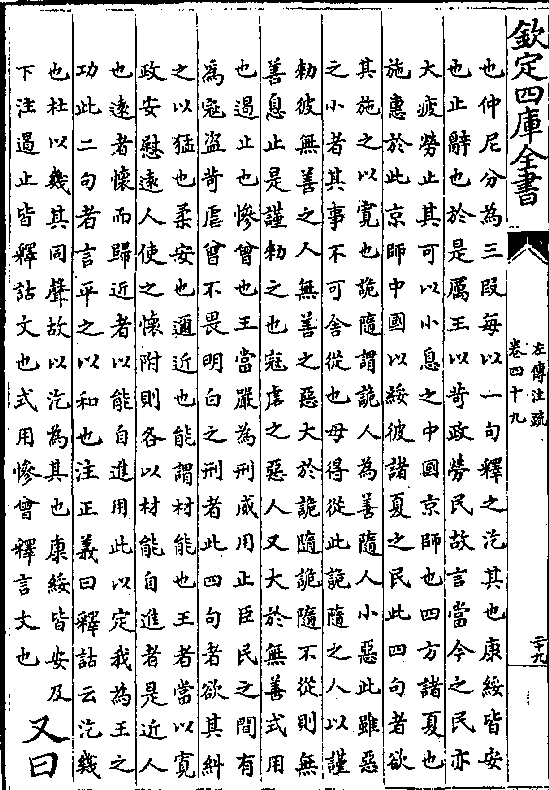 欽定四庫全書
左傳注疏
卷四十九
二十九
也仲尼分為三段每以一句釋之汔其也康綏皆安
也止辭也於是厲王以苛政勞民故言當今之民亦
大疲勞止其可以小息之中國京師也四方諸夏也
施惠於此京師中國以綏彼諸夏之民此四句者欲
其施之以寬也詭隨謂詭人為善隨人小惡此雖惡
之小者其事不可舍從也毋得從此詭隨之人以謹
勑彼無善之人無善之惡大於詭隨詭隨不從則無
善息止是謹勑之也寇虐之惡人又大於無善式用
也遏止也慘曾也王當嚴為刑威用止臣民之間有
為寇盜苛虐曾不畏明白之刑者此四句者欲其糾
之以猛也柔安也邇近也能謂材能也王者當以寬
政安慰遠人使之懷附則各以材能自進者是近人
也遠者懷而歸近者以能自進用此以定我為王之
功此二句者言平之以和也注正義曰釋詁云汔幾
也杜以幾其同聲故以汔為其也康綏皆安及
下注遏止皆釋詁文也式用慘曾釋言文也
又曰